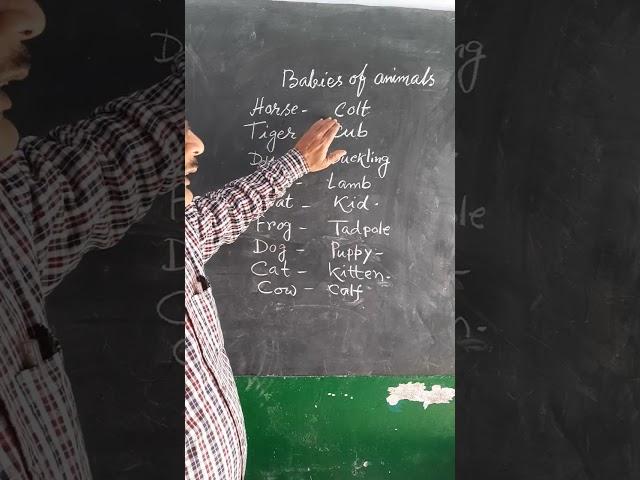 Babies of animals
Horse - Colt
Tiger Cub
Duckling
- Lamb
Kid.
Frog - Tadpole
Dog - Puppy -
Cat - Kitten.
Cow - Calf